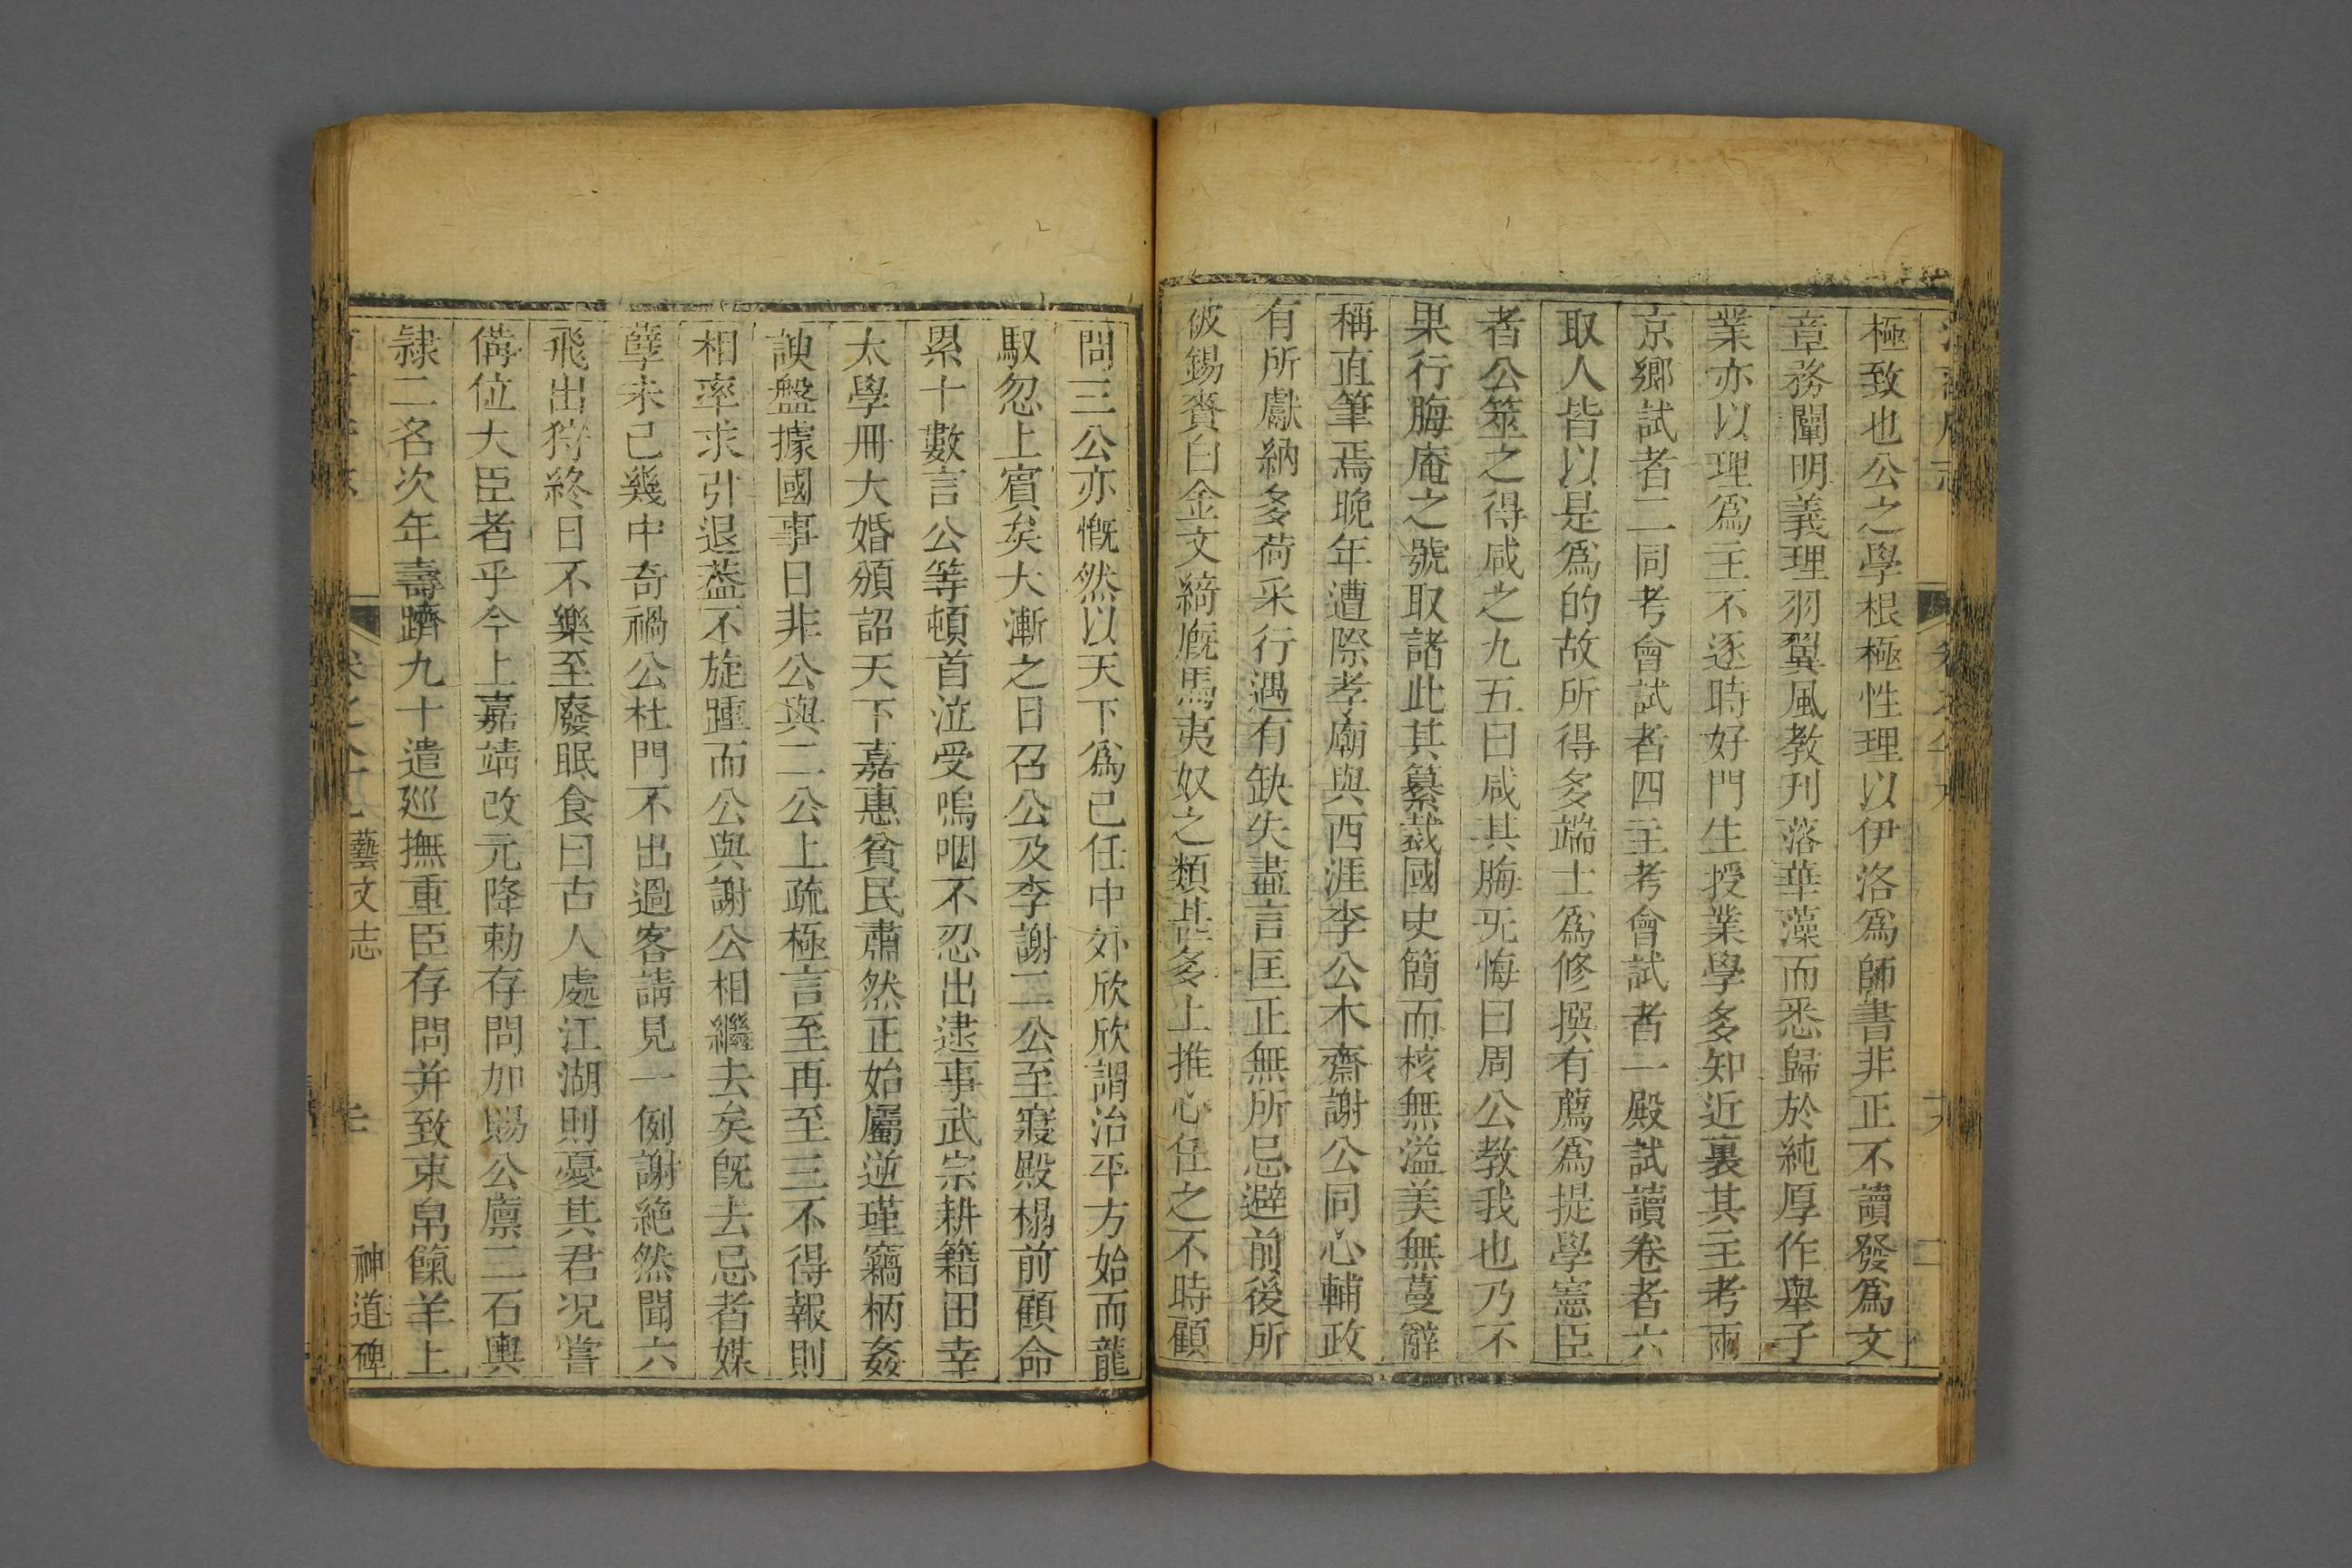 極致也公之學根極性理以伊洛爲師書非正不讀發爲文
章務闡明義理羽翼風教刋落華藻而悉歸於純厚作舉子
業亦以理爲主不逐時好門生授業學多知近裏其主考兩
京鄉試者二同考會試者四主考會試者一殿試讀卷者六
取人皆以是爲的故所得多端士爲修撰有薦爲提學憲臣
者公筮之得咸之九五曰咸其脢旡悔曰周公教我也乃不
果行脢庵之號取諸此其纂裁國史簡而核無溢美無蔓辭
稱直筆焉晚年遭際孝廟與西涯李公木齋謝公同心輔政
有所獻納多荷采行遇有缺失盡言匡正無所忌避前後所
被錫賚白金文綺廐馬夷奴之類甚多上推心任之不時顧
問三公亦慨然以天下爲己任中外欣欣謂治平方始而龍
馭忽上賓矣大漸之日召公及李謝二公至寢殿榻前顧命
累十數言公等頓首泣受嗚咽不忍出逮事武宗耕籍田幸
太學冊大婚頒詔天下嘉惠貧民肅然正始屬逆瑾竊柄姦
諛盤據國事日非公與二公上疏極言至再至三不得報則
相率求引退葢不旋踵而公與謝公相繼去矣旣去忌者媒
孽未已幾中奇禍公杜門不出過客請見一例謝絶然聞六
飛出狩終日不樂至廢眠食曰古人處江湖則憂其君况嘗
備位大臣者乎今上嘉靖改元降勅存問加賜公廪二石輿
隷二名次年壽躋九十遣廵撫重臣存問并致束帛餼羊上
藝文志
神道碑